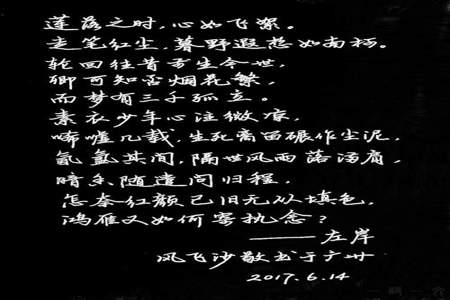 莲落之时，心如飞絮。
走笔红尘，暮野遐想如南柯。
轮回往昔君生今世，
卿可知否烟花繁，
而梦有三千孤立。
素衣少年心注微凉，
唏嘘几载，生死离苗碾作尘泥，
氤氲其间，隔世风雨落汤肩，
暗香随遗问归程，
怎奈红颜已旧无从填色，
鸿雁又如何寄执念？
——左岸
风飞沙敬书于广州
2017.6.14